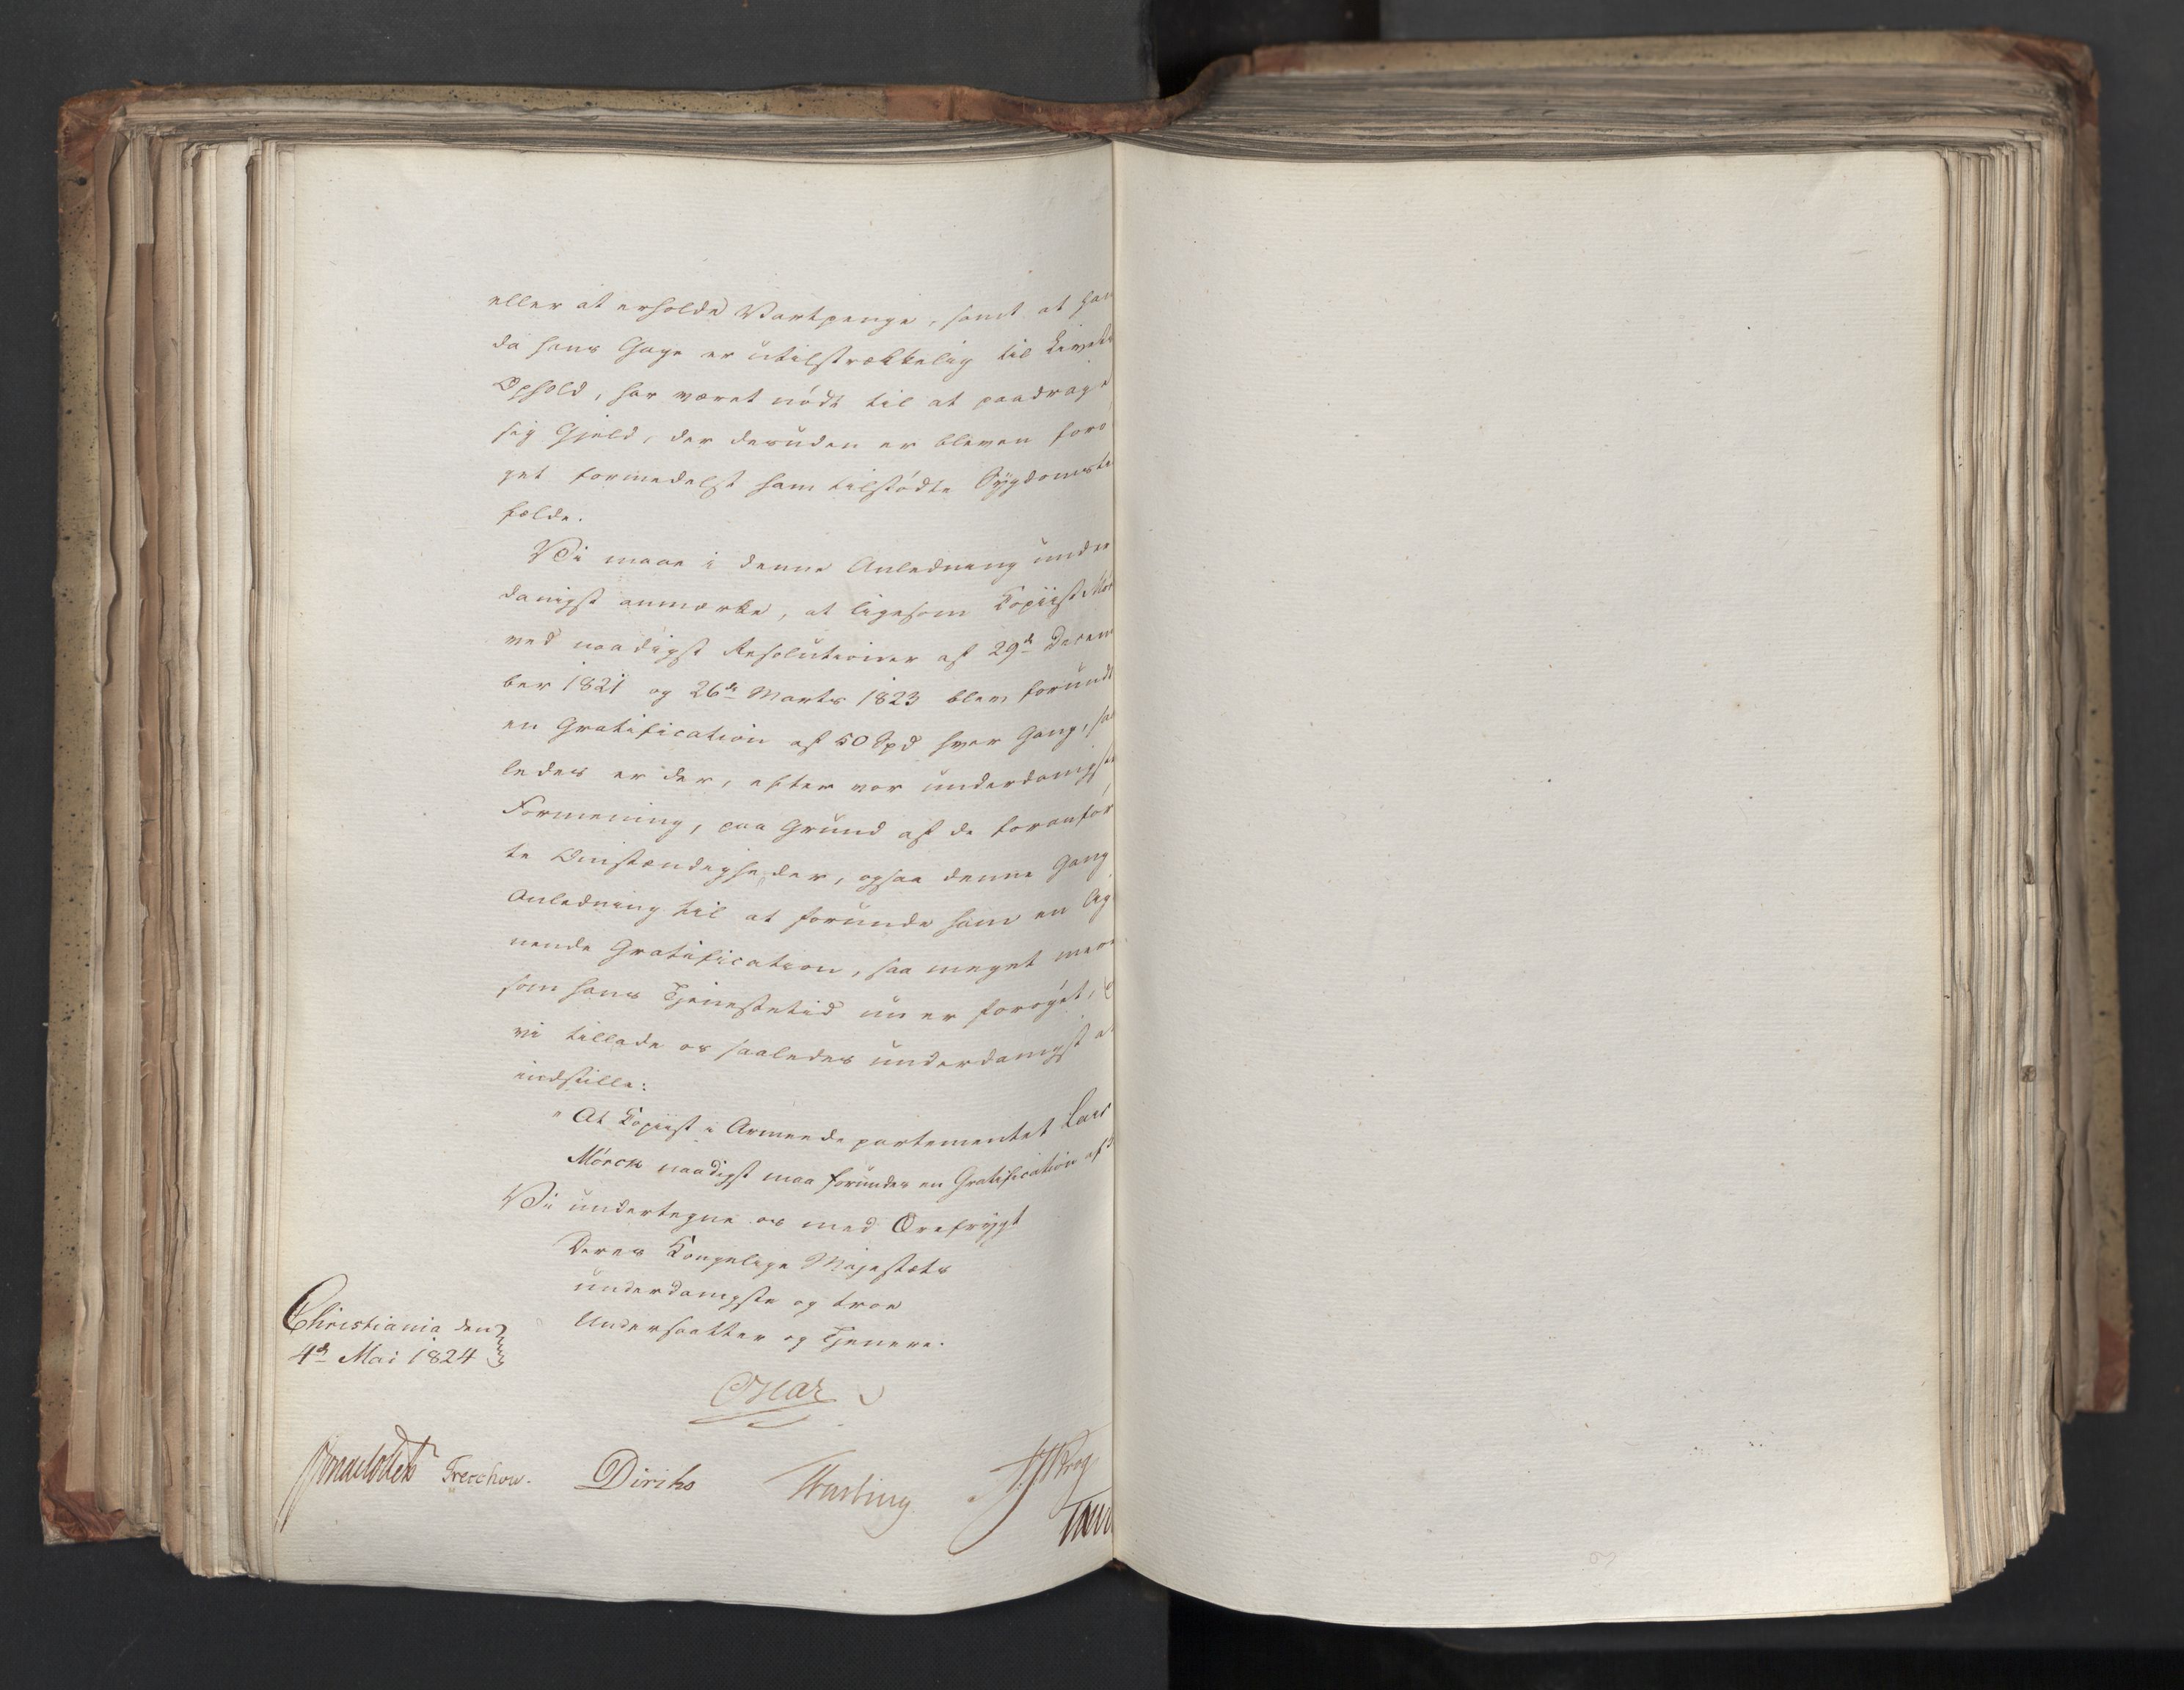 eller at erholde Vartpenge, samt at han
da hans Gage er utilstrækkelig til Livets
Ophold, har været nödt til at paadrage
sig Gjeld, der desuden er bleven forö
get formedelst ham tilstödte Sygdomstil
fælde.
Vi maae i denne Anledning under
danigst anmærke, at ligesom Kopiist Mör
ved naadigst Resolutioner af 29de Decem
ber 1821 og 26de Marts 1823 blev forundt
en Gratification af 50 Spd hver Gang, saa
ledes er der, efter vor underdanigste
Formening, paa Grund af de foranför
te Omstændigheder, ogsaa denne Gang
Anledning til at forunde ham en lig
nende Gratification, saa meget mere
som hans Tjenestetid nu er foröget,
vi tillade os saaledes underdanigst at
indstille:
"At Kopiist i Armeedepartementet Lars
Mörch naadigst maa forundes en Gratification af
Vi undertegne os med Ærefrygt
Deres Kongelige Majestæts
underdanigste og troe
Undersaatter og Tjenere.
Christiania den
4de Mai 1824
Oscar
Treschow.
Diriks